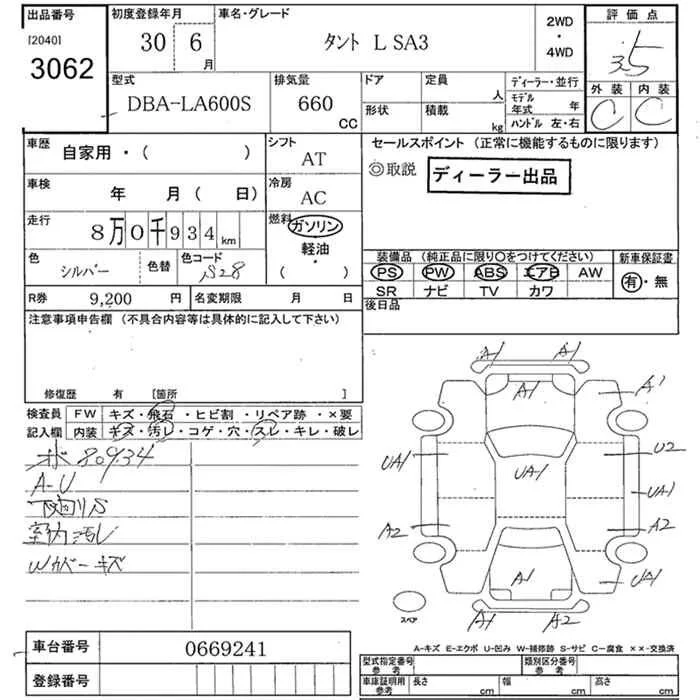 出品番号 初度登録年月 車名・グレード 2WD・4WD 評価点
[2040]
3062
30 6月 タント L SA3 3.5
外装 内装
C C
型式 排気量 ドア 定員 人 ディーラー・並行
DBA-LA600S 660 CC 形状 積載 kg モデル年式 年
ハンドル 左・右
車歴 自家用・( ) シフト AT
セールスポイント (正常に機能するものに限ります)
◎取説 ディーラー出品
車検 年 月( 日) 冷房 AC
走行 8万0千934km 燃料 ガソリン
軽油・( )
色 シルバー 色替 色コード S28
装備品 (純正品に限り○をつけてください) 新車保証書
PS PW ABS エアB AW 有・無
SR ナビ TV カワ
R券 9,200円 名変期限 月 日
後日品
注意事項申告欄 (不具合内容等は具体的に記入して下さい)
修復歴 有 [箇所 ]
検査員記入欄 FW キズ・飛石・ヒビ割・リペア跡・×要
内装 キズ・汚レ・コゲ・穴・スレ・キレ・破レ
オド 80934
A-U
下回りS
室内汚レ
Wカバーキズ
A1 A1
A1 A1
UA1 UA1 U2
UA1
A2 A2
A1 UA1
A1 A2
スペア
A-キズ E-エクボ U-凹み W-補修跡 S-サビ C-腐食 ××-交換済
車台番号 0669241
登録番号
型式指定番号 参考 類別区分番号 参考
車庫証明用 参考 長さ cm 幅 cm 高さ cm